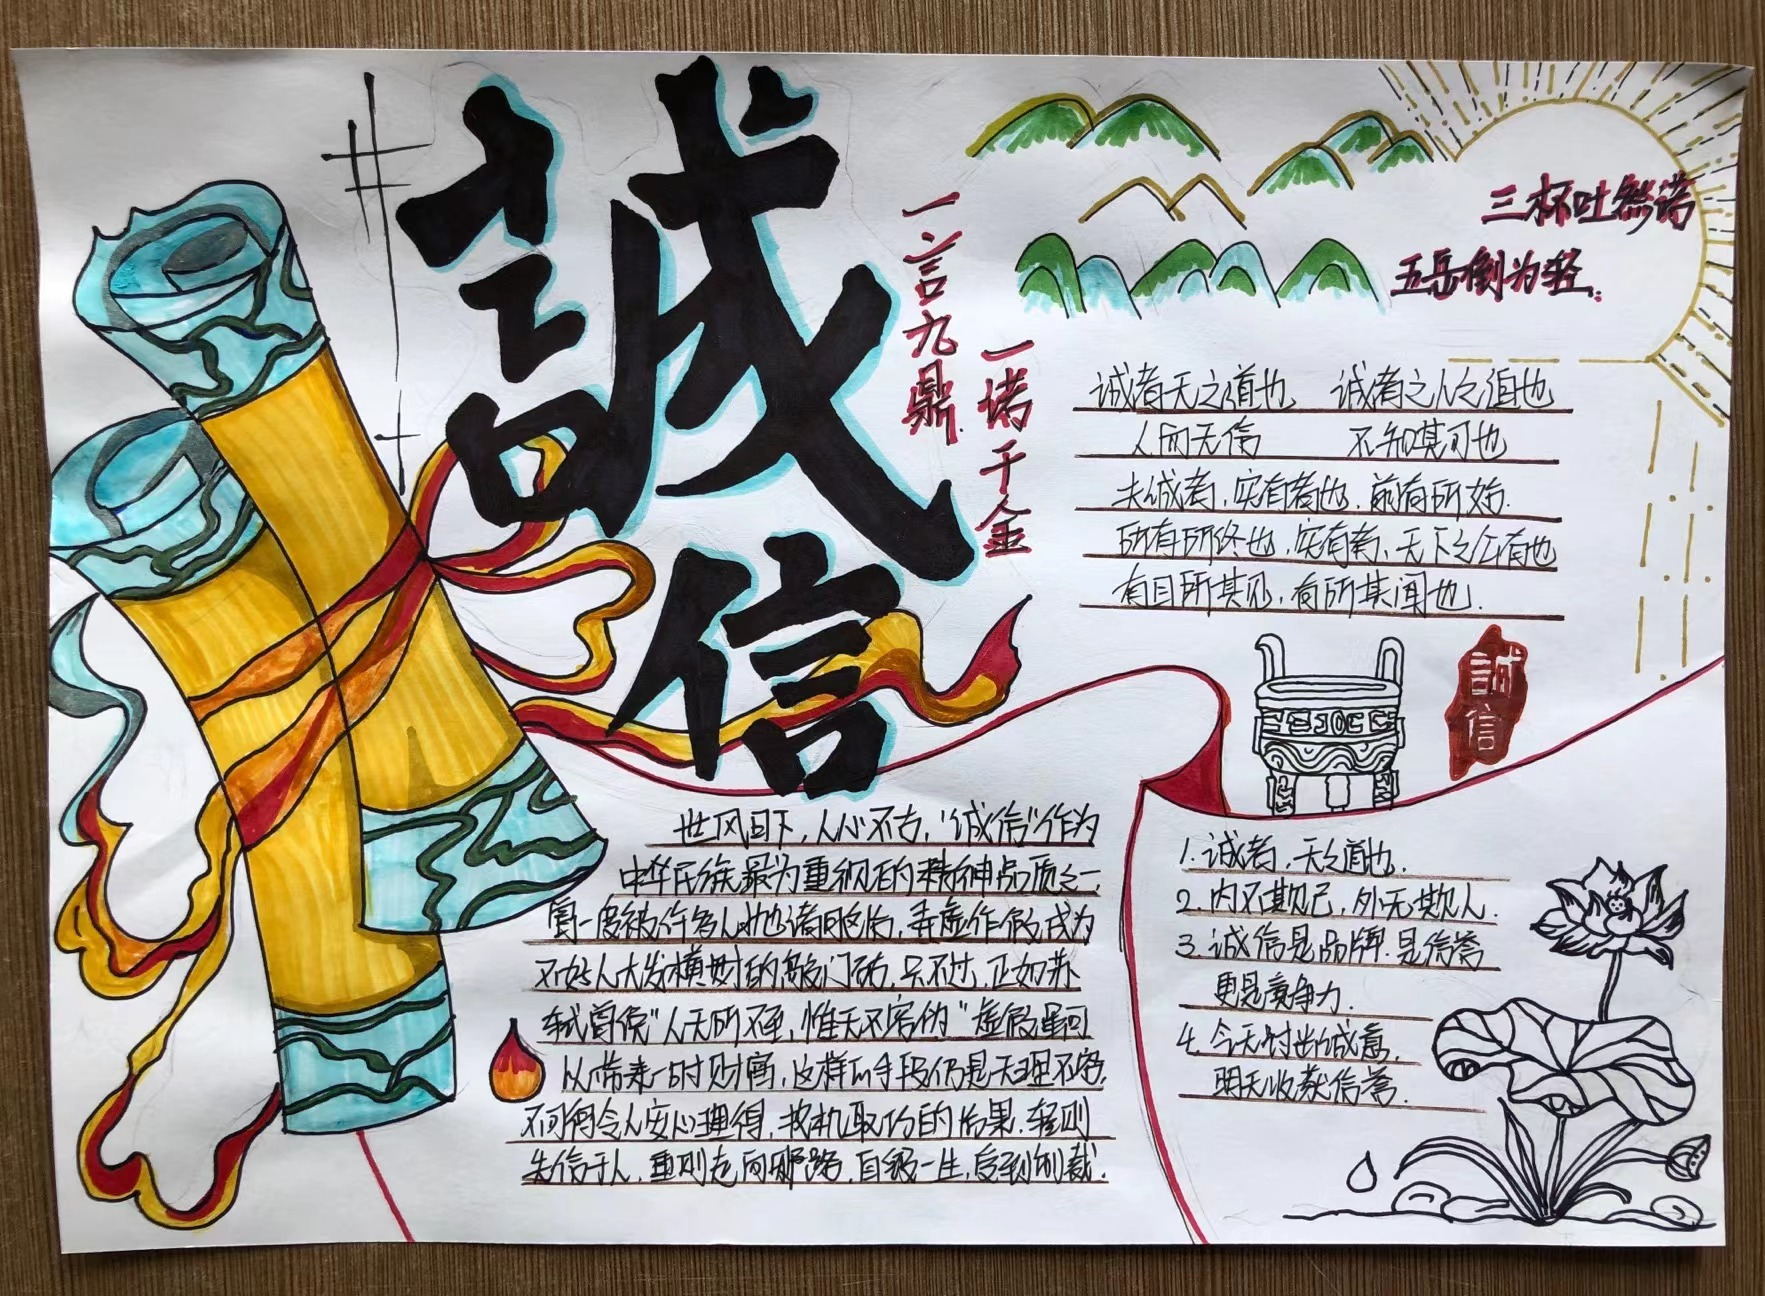 誠信
一言九鼎
一诺千金
三杯吐然诺
五岳倒为轻.
诚者天之道也 诚者之人之道也
人而无信 不知其可也
夫诚者,实有者也,前有所始.
所有所终也,实有者、天下之公有也
有目所其见,有所其闻也.
誠信
世风日下,人心不古,"诚信"作为
中华民族最为重视的精神品质之一,
曾一度被许多人地诸脑后,弄虚作假成为
不好人大发横财的敲门砖,只不过,正如苏
轼曾说"人无所不至,惟天不容伪"虚假虽可
以带来一时财富,这样的手段仍是天理不容,
不问何令人安心理得,投机取巧的后果,轻则
失信于人,重则走向邪路,自毁一生,受到制裁.
1.诚者,天之道也.
2.内不欺己,外无欺人.
3.诚信是品牌.是信誉
更是竞争力.
4.今天付出诚意,
明天收获信誉.